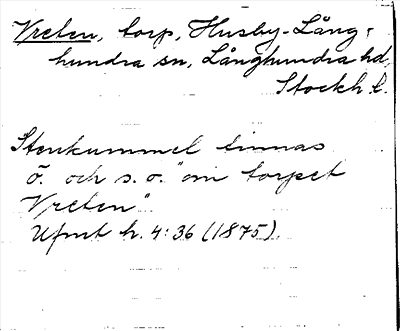 Vreten, torp, Husby-Lång-
hundra sn, Långhundra hd,
Stockh. l.
Stenkummel finnas
ö. och s. o. "om torpet
Vreten"
Ufmt h. 4: 36 (1875)